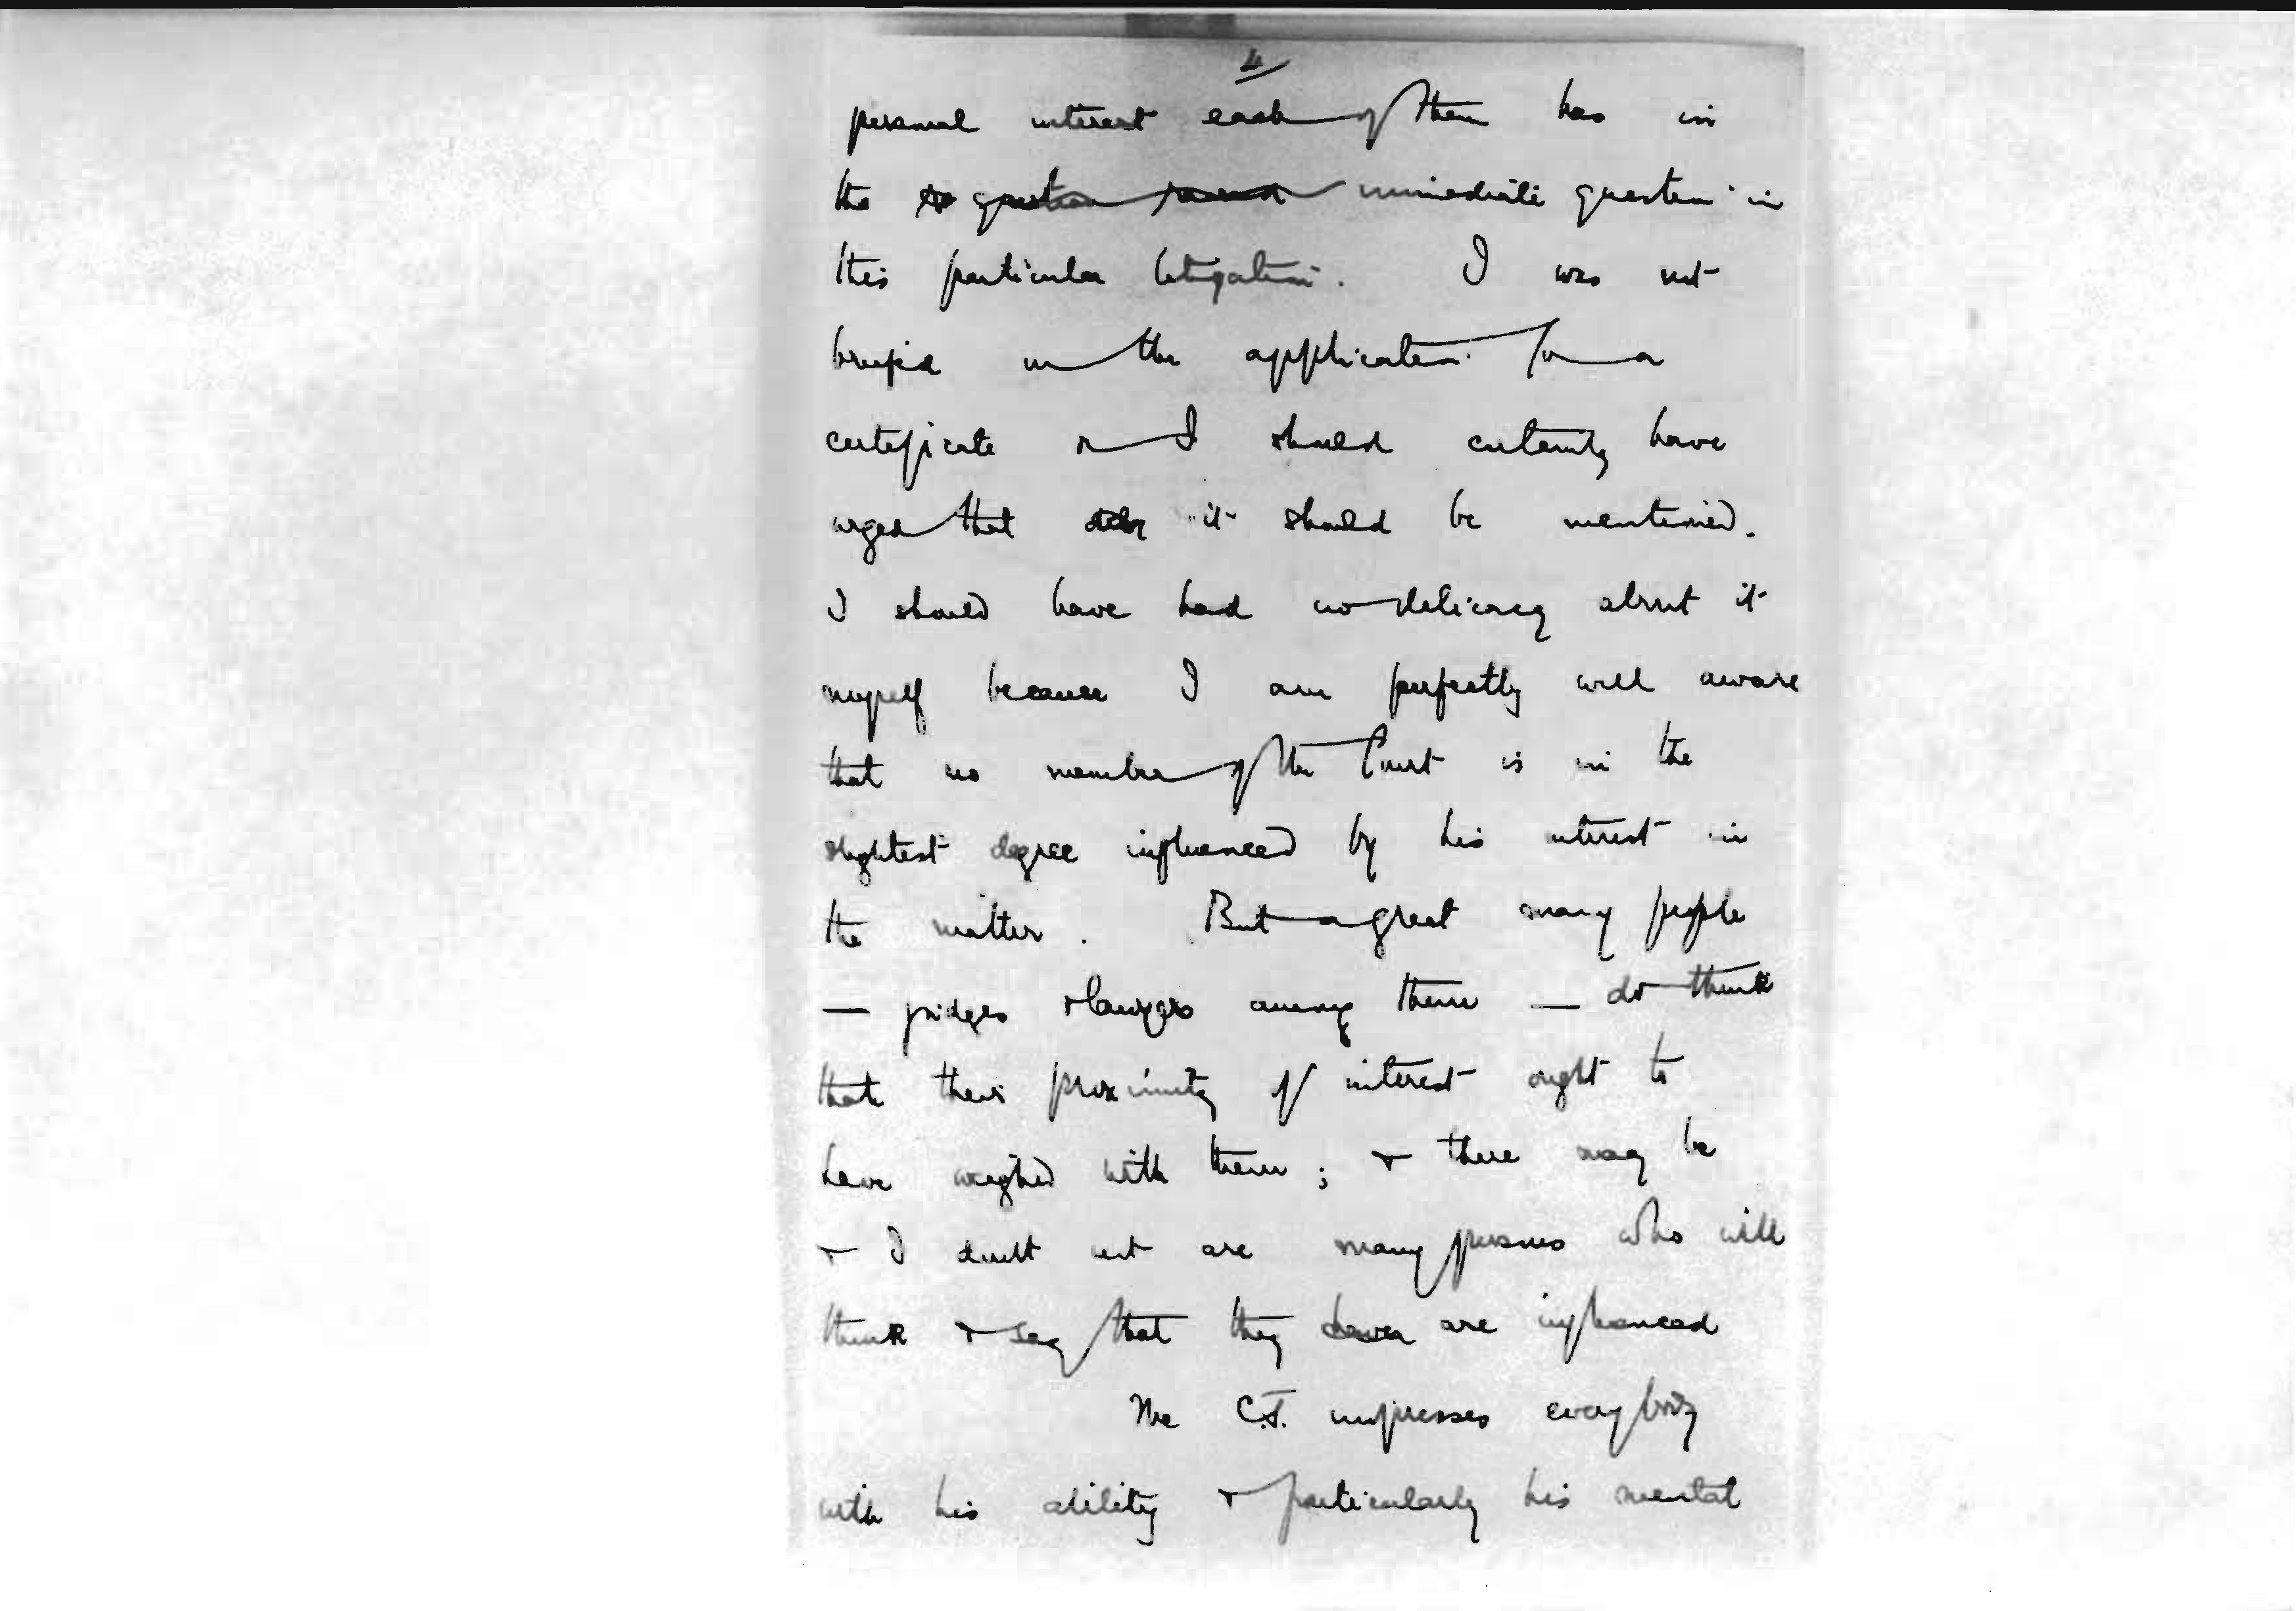 4
personal interest each of them has in
the question raised immediate question in
this particular litigation. I was not
briefed in the application for a
certificate or I should certainly have
urged that it should be mentioned.
I should have had no delicacy about it
myself because I am perfectly well aware
that no member of the Court is in the
slightest degree influenced by his interest in
the matter. But a great many people
— judges & lawyers among them — do think
that their proximity of interest ought to
have weighed with them; & there may be
& I doubt not are many persons who will
think & say that they are influenced
The C.J. impresses everybody
with his ability & particularly his mental